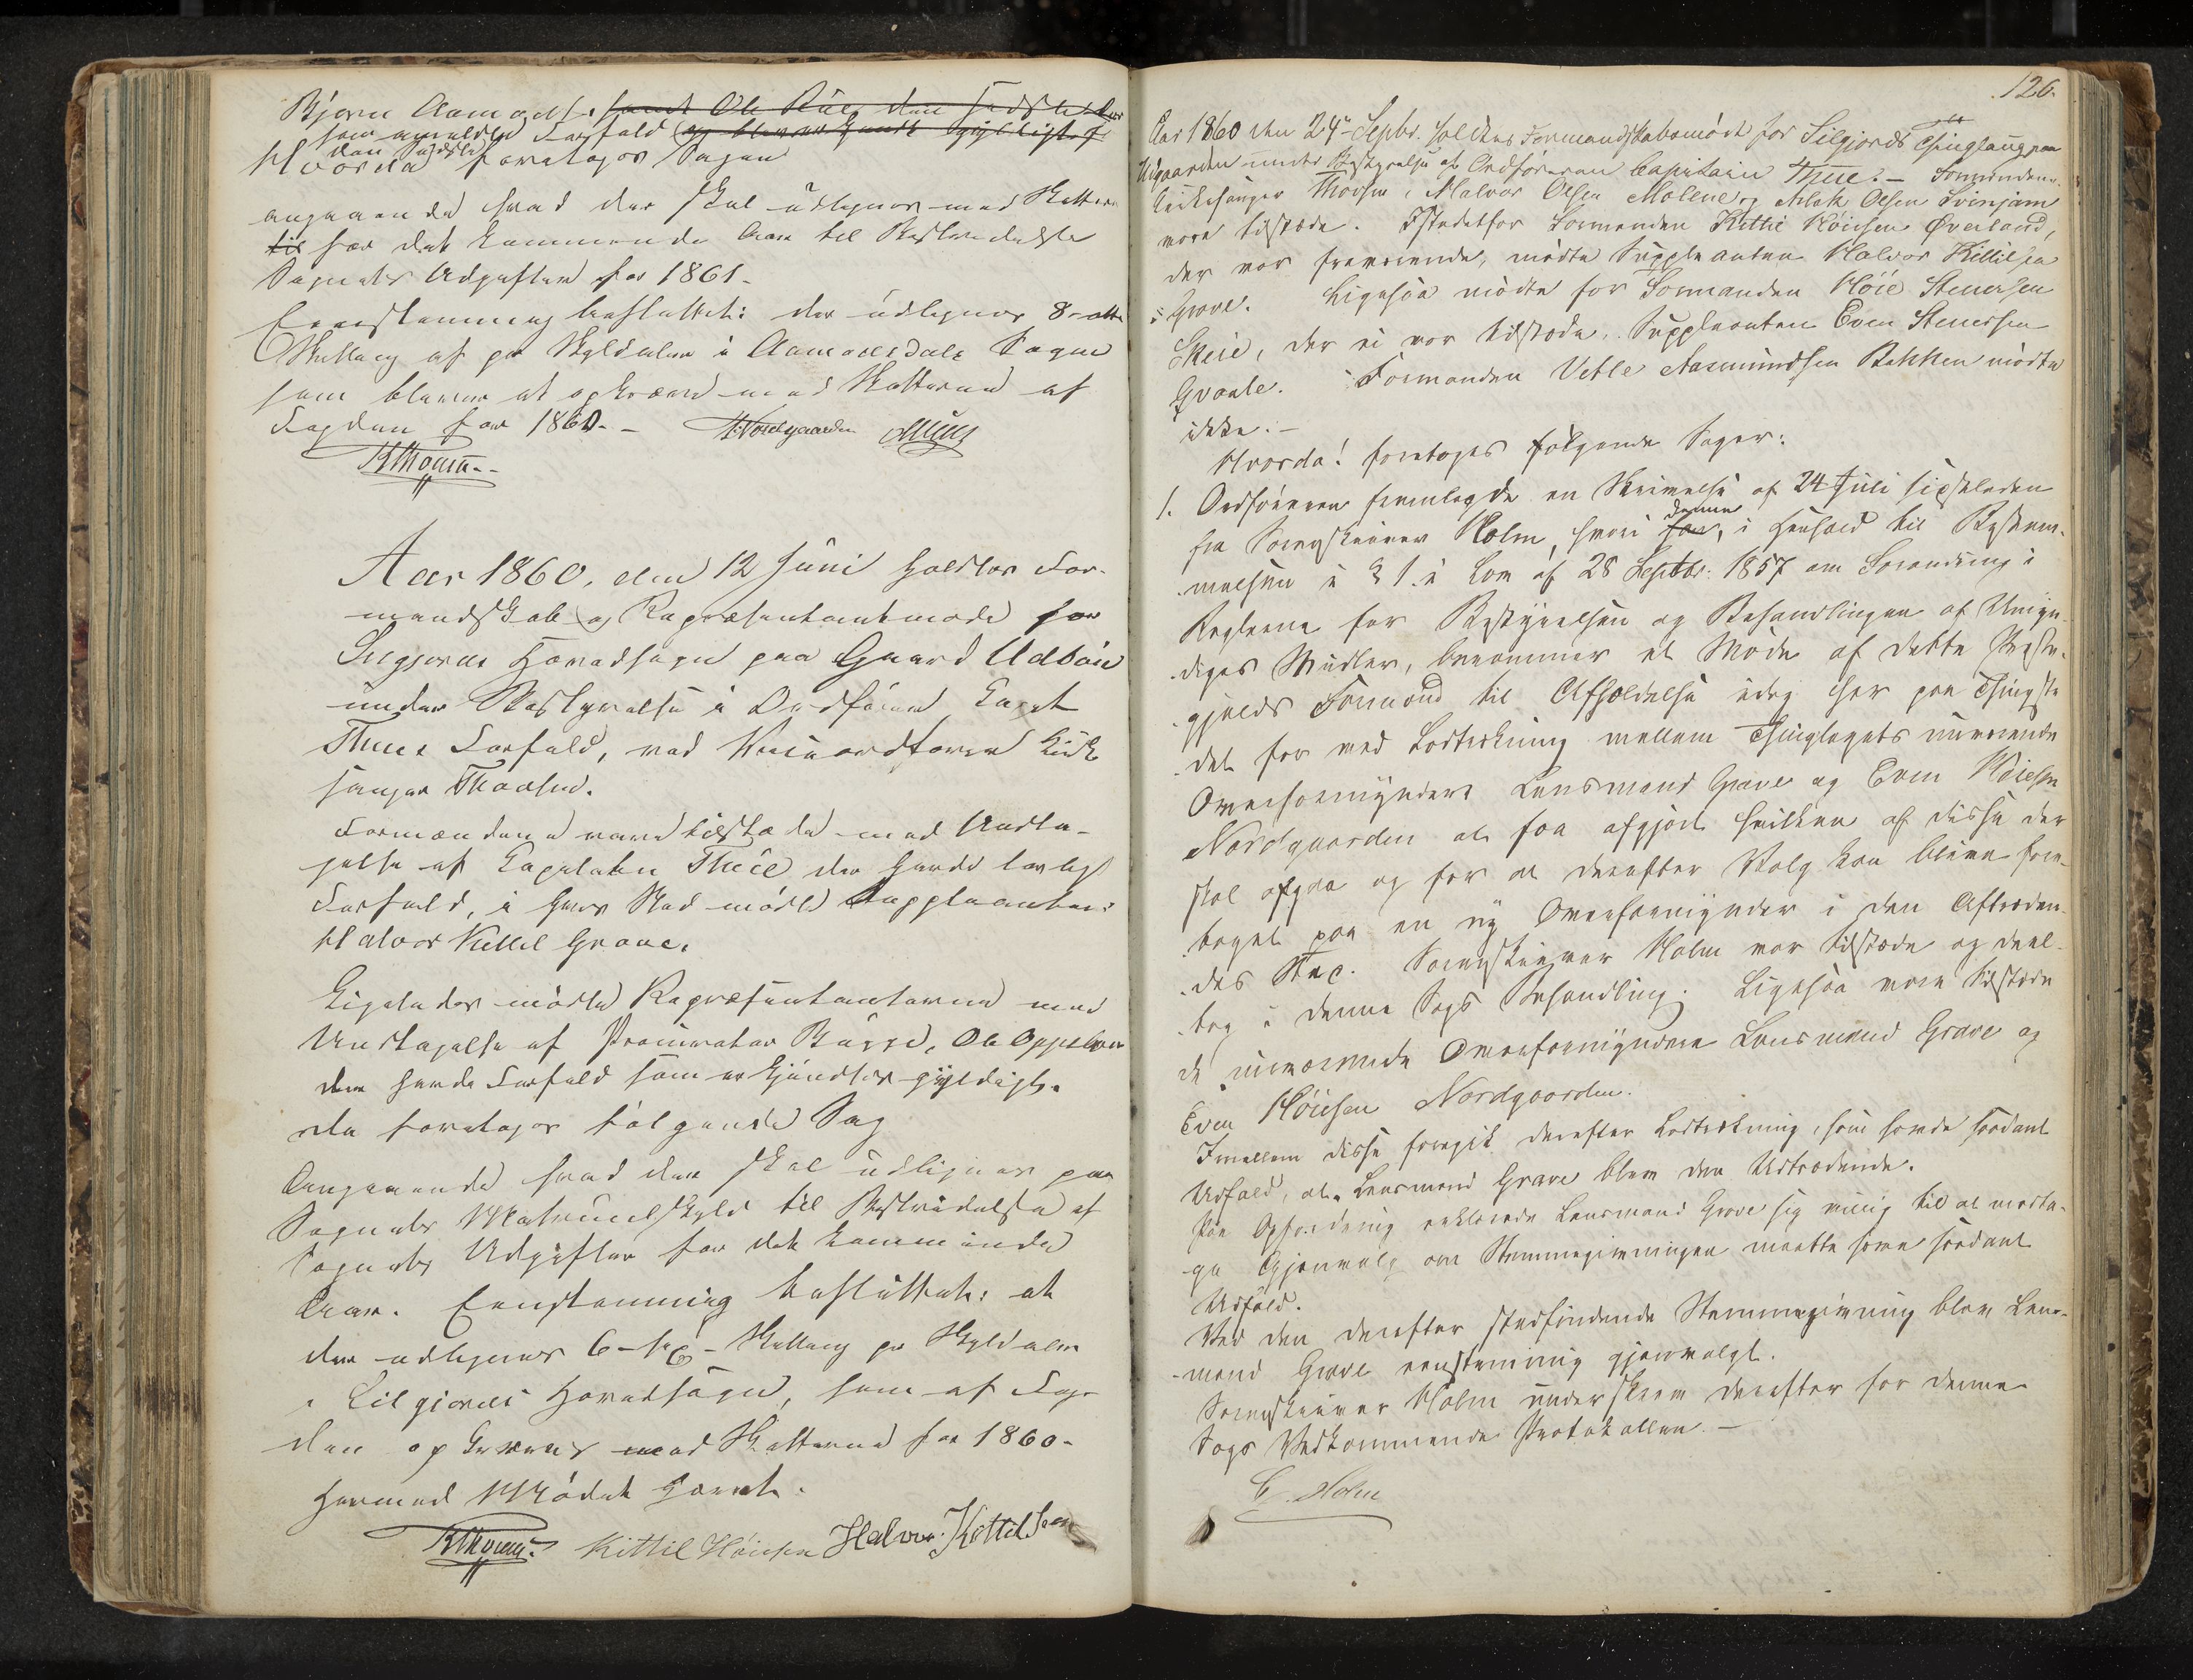 Bjørn Aamodt. samt Ole Rue, den sidste
som anmeldte Forfald og blev erkjendt gyldigt
den sidste
Hvorda foretages Sagen
angaaende hvad der skal udlignes med Skatten
til for det kommende Aar til Bestridelse
Sognets Udgifter for 1861.
Eenstemmig besluttet: der udlignes 8 - otte
Skilling af pr Skylddaler i Aamotsdals Sogn
som bliver at opkræve med Skatterne af
Fogden for 1860. - H. Nordgaarden
KThovsen.
Aar 1860, den 12 Juni holdtes For-
mandskab og Repræsentantmøde for
Silgjords Hovedsogn paa Gaard Udbøen
under Bestyrelse i Ordfører Capt
Thues Forfald, ved Viceordfører Kirke
sanger Thovsen.
Formændene vare tilstæde med Undta-
gelse af Capitain Thue der havde lovligt
Forfald, i hans Sted mødte Suppleanten:
Halvor Kittil Grave.
Ligeledes mødte Repræsentanterne med
Undtagelse af Procurator Barre, Ole Oppebøen
der havde Forfald som erkjendtes gyldigt.
da foretages følgende Sag
Angaaende hvad der skal udlignes paa
Sognets Matrikulskyld til Bestridelse af
Sognets Udgifter for det kommende
Aar. Eenstemmig besluttet: at
der udlignes 6 - sex - Skilling pr Skylddaler
i Silgjords Hovedsogn, som af Fog-
den opkræves med Skatterne for 1860.
Hermed Mødet hævet.
KThovsen. Kittil Høiesen Halvor Kittilsen
126.
Aar 1860 den 24de Septbr. holdtes Formandskabsmøde for Silgjords Thinglaug paa
Udgaarden under Bestyrelse af Ordføreren Capitain Thue. - Formændene
Kirkesanger Thovsen, Halvor Olsen Molene og Aslak Olsen Svinjam
vare tilstæde. Istedetfor Formanden Kittil Høiesen Øverland,
der var fraværende, mødte Suppleanten Halvor Kittilsen
Grave. Ligesaa mødte for Formanden Høie Steversen
Skeie, der ei var tilstæde, Suppleanten Even Steversen
Qvaale. Formanden Vetle Aasmundsen Bakken mødte
ikke. -
Hvorda! foretoges følgende Sager:
1. Ordføreren fremlagde en Skrivelse af 24 Juli sidstleden
denne
fra Sorenskriver Holm, hvori han, i Henhold til Bestem-
melsen i § 1 i Lov af 28 Septbr. 1857 om Forandring i
Reglerne for Bestyrelsen og Behandlingen af Umyn-
diges Midler, berammer et Møde af dette Præste-
gjelds Formænd til Afholdelse idag her paa Thingste-
det for ved Lodtrækning mellem Thinglagets nuværende
Overformyndere Lensmand Grave og Even Høiesen
Nordgaarden at faa afgjort hvilken af disse der
skal afgaa og for at derefter Valg kan blive fore-
taget paa en ny Overformynder i den Aftræden-
des Sted. Sorenskriver Holm var tilstæde og deel-
tog i denne Sags Behandling. Ligesaa vare tilstæde
de nuværende Overformyndere Lensmand Grave og
Even Høiesen Nordgaarden.
Imellem disse foregik derefter Lodtrækning, som havde saadant
Udfald, at Lensmand Grave blev den Udtrædende.
Paa Opfordring erklærede Lensmand Grave sig villig til at modta-
ge Gjenvalg om Stemmegivningen maatte have saadant
Udfald.
Ved den derefter stedfindende Stemmegivning blev Lens-
mand Grave eenstemmig gjenvalgt.
Sorenskriver Holm underskrev derefter for denne
Sags Vedkommende Protokollen. -
C. Holm